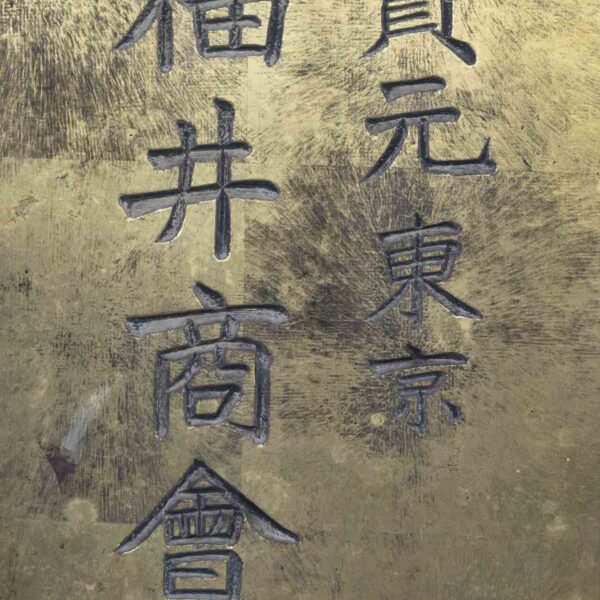 賣元東京
福井商會